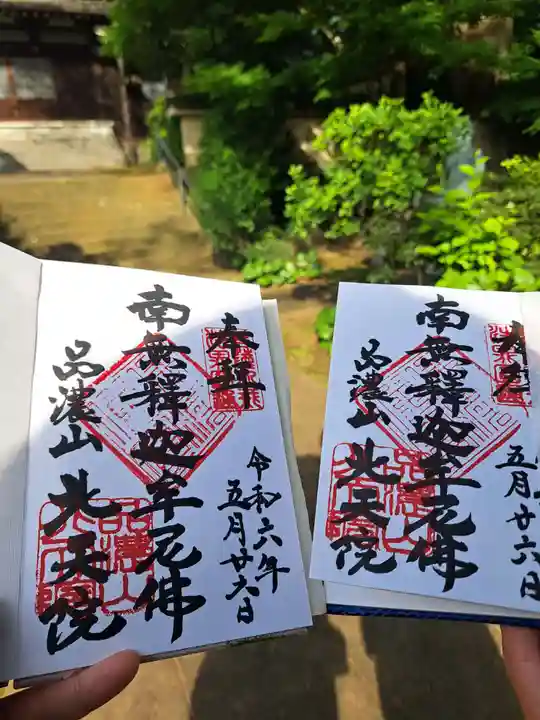 奉拝
令和六年
五月廿六日
南無釋迦牟尼佛
品濃山
北天院
奉拝
五月廿六日
南無釋迦牟尼佛
品濃山
北天院